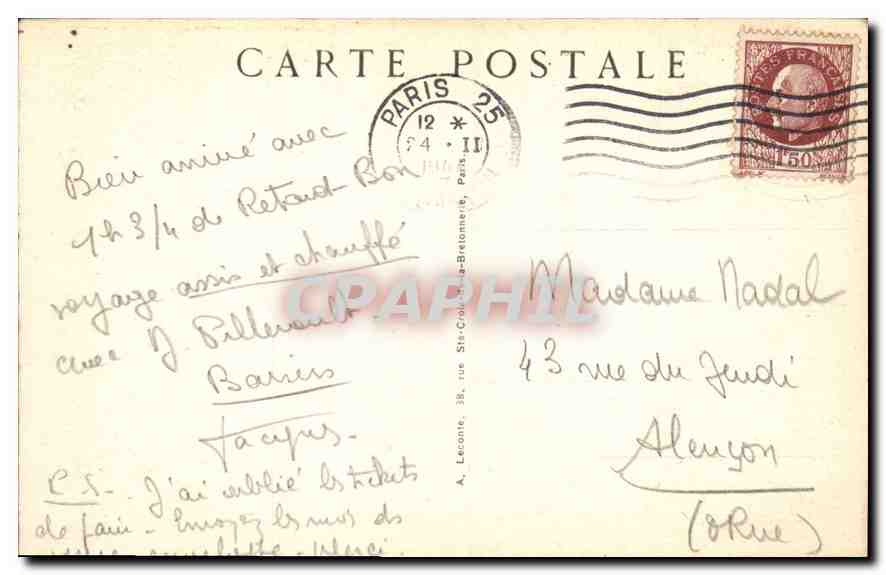 CARTE POSTALE
PARIS 25
12 *
24 · II
POSTES FRANÇAISES
1F50
Bien arrivé avec
1h 3/4 de Retard - Bon
voyage assis et chauffé
avec M. Pillerault -
Baisers
Jacques -
P.S. - J'ai oublié les tickets
de pain - Envoyez les moi ds
enveloppe - Merci.
A. Leconte, 38, rue Ste-Croix-de-la-Bretonnerie, Paris.
CPAPHIL
Madame Nadal
43 rue du Jeudi
Alençon
(ORne)